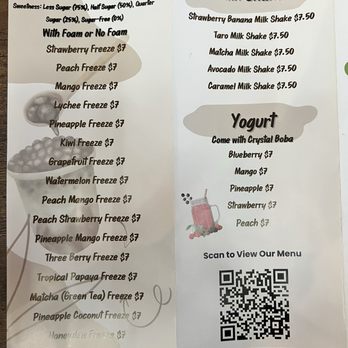 Sweetness: Less Sugar (75%), Half Sugar (50%), Quarter
Sugar (25%), Sugar-Free (0%)
With Foam or No Foam
Strawberry Freeze $7
Peach Freeze $7
Mango Freeze $7
Lychee Freeze $7
Pineapple Freeze $7
Kiwi Freeze $7
Grapefruit Freeze $7
Watermelon Freeze $7
Peach Mango Freeze $7
Peach Strawberry Freeze $7
Pineapple Mango Freeze $7
Three Berry Freeze $7
Tropical Papaya Freeze $7
Matcha (Green Tea) Freeze $7
Pineapple Coconut Freeze $7
Honeydew Freeze $7
Strawberry Banana Milk Shake $7.50
Taro Milk Shake $7.50
Matcha Milk Shake $7.50
Avocado Milk Shake $7.50
Caramel Milk Shake $7.50
Yogurt
Come with Crystal Boba
Blueberry $7
Mango $7
Pineapple $7
Strawberry $7
Peach $7
Scan to View Our Menu